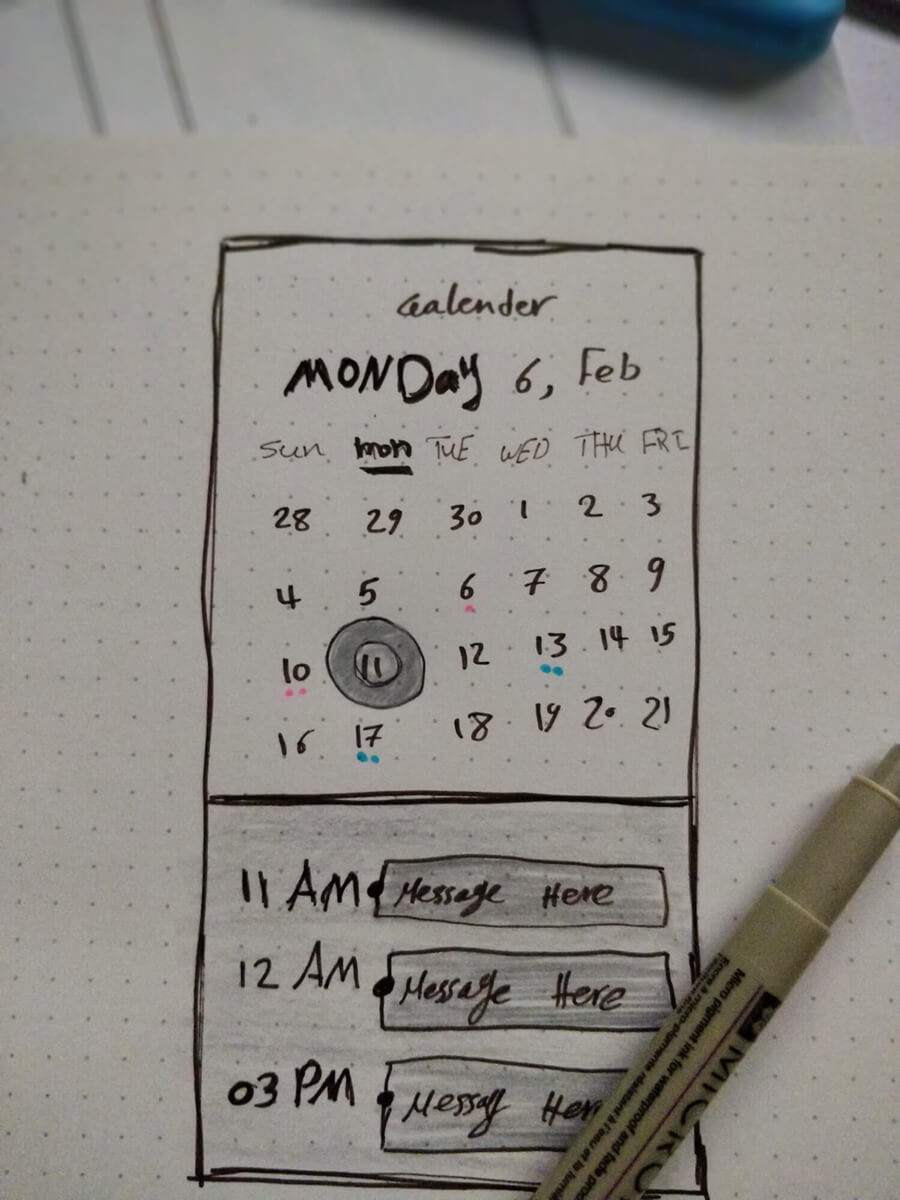 Calender
MONDay 6, Feb
Sun mon TUE WED THU FRI
28 29 30 1 2 3
4 5 6 7 8 9
10 11 12 13 14 15
16 17 18 19 20 21
11 AM Message Here
12 AM Message Here
03 PM Messag Here
MICRO
Micro pigment ink for waterproof and fade proof